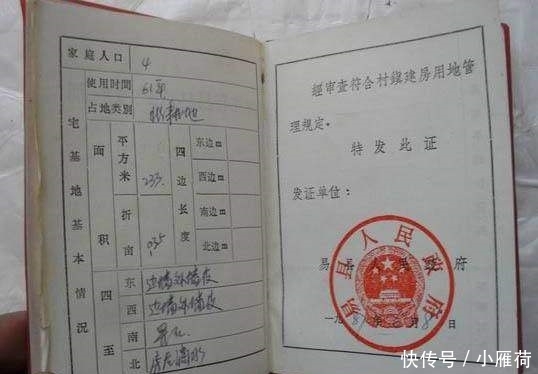 家庭人口 4
使用时间 61年
占地类别
宅基地基本情况
面积
平方米 233
折亩 0.35
四边长度
东边m
西边m
南边m
北边m
四至
东 边墙外墙皮
西 边墙外墙皮
南
北 房后滴水
经审查符合村镇建房用地管
理规定。
特发此证
发证单位:
易县人民政府
易县人民政府
一九8 年 月8日
快传号 / 小雁荷